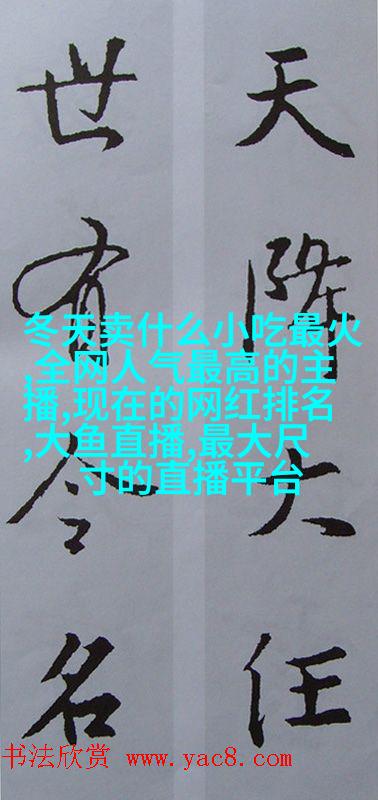 天降大任
世有令名
冬天卖什么小吃最火
,全网人气最高的主
播,现在的网红排名
,大鱼直播,最大尺
寸的直播平台
书法欣赏 www.yac8.com